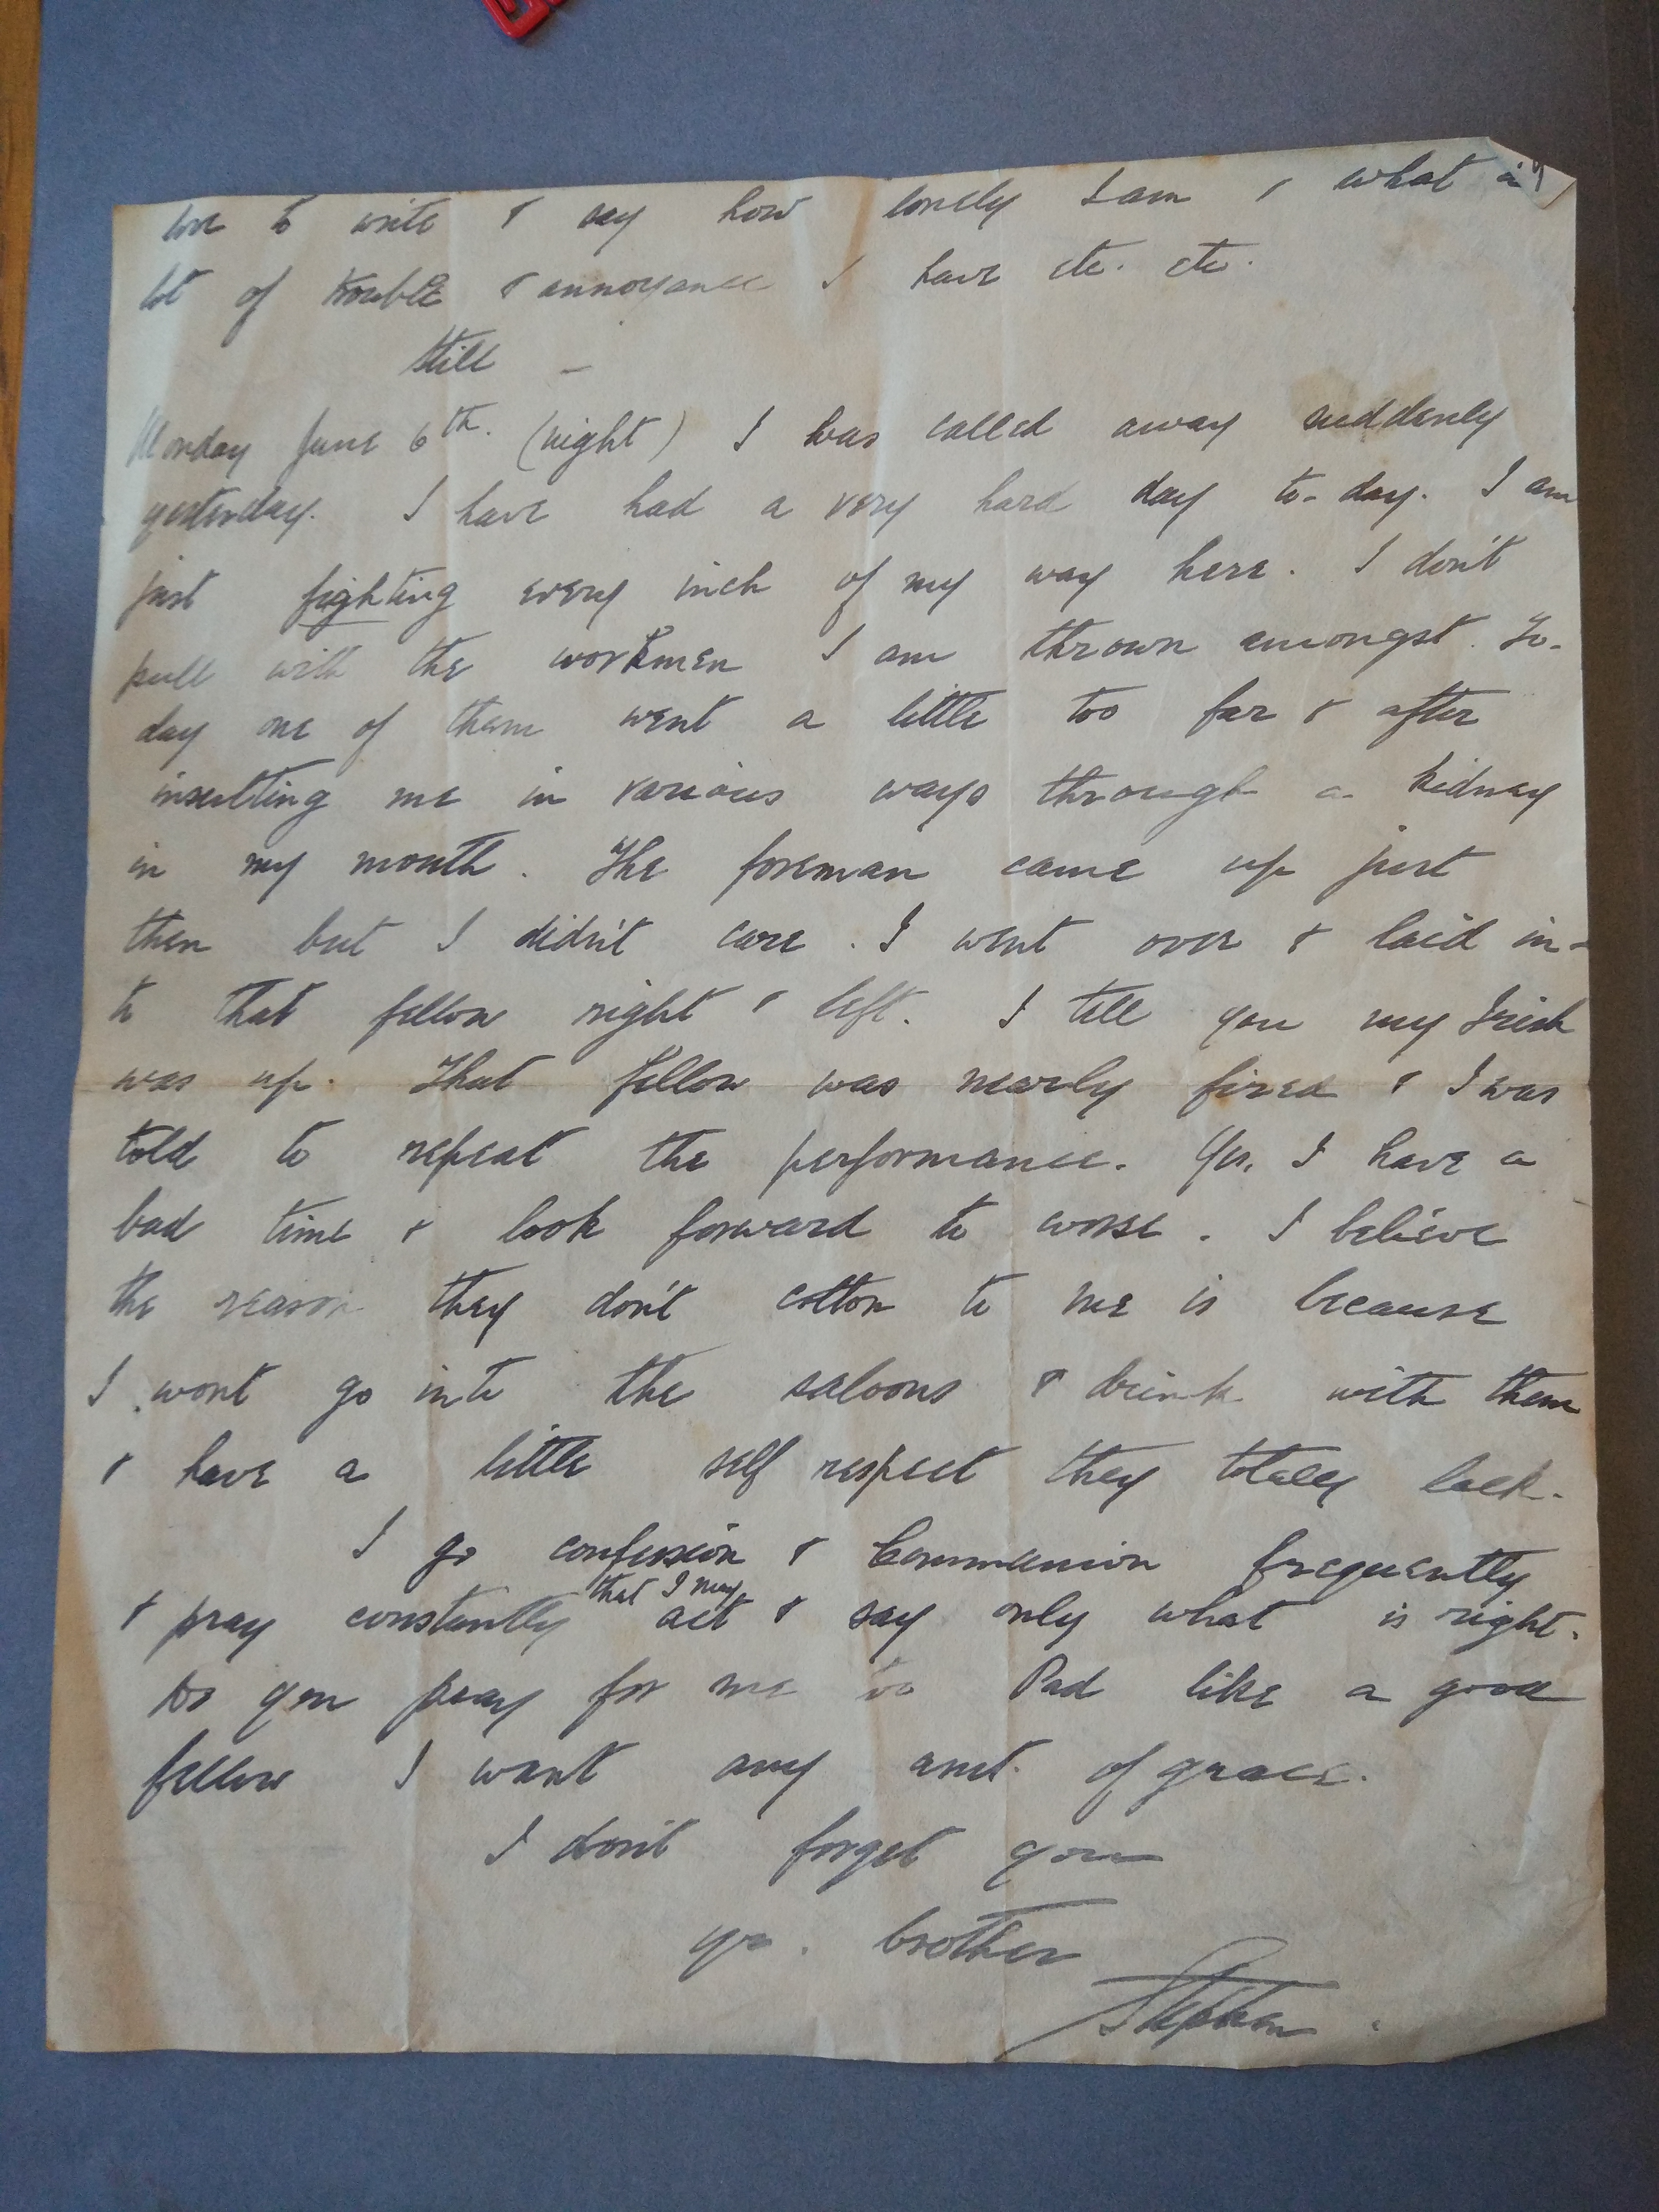 love to write & say how lonely I am & what a
lot of trouble & annoyance I have etc. etc.
Still –
Monday June 6th. (night) I was called away suddenly
yesterday. I have had a very hard day to-day. I am
just fighting every inch of my way here. I don't
pull with the workmen I am thrown amongst. To-
day one of them went a little too far & after
insulting me in various ways through a kidney
in my mouth. The foreman came up just
then but I didn't care. I went over & laid in-
to that fellow right & left. I tell you my Irish
was up. That fellow was nearly fired & I was
told to repeat the performance. Yes, I have a
bad time & look forward to worse. I believe
the reason they don't cotton to me is because
I wont go into the saloons & drink with them
& have a little self respect they totally lack.
I go confession & Communion frequently
& pray constantly that I may act & say only what is right.
Do you pray for me too Pad like a good
fellow I want any amt. of grace.
I don't forget you
yr. brother
Stephen.